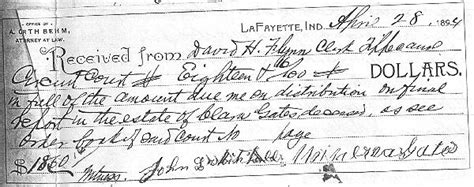 OFFICE OF
A. ORTH BEHM,
ATTORNEY AT LAW.
LAFAYETTE, IND. April 28, 1894
Received from David H. Flynn Clerk Tippecanoe
Circuit Court $ Eighteen & 60/100 DOLLARS.
in full of the amount due me on distribution on final
report in the estate of Clara Gates deceased, as see
order book of said Court No page
$ 1860 Witness John